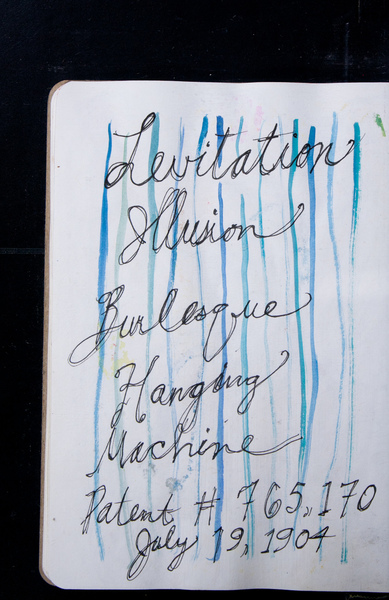 Levitation
Illusion
Burlesque
Hanging
Machine
Patent # 765,170
July 19, 1904